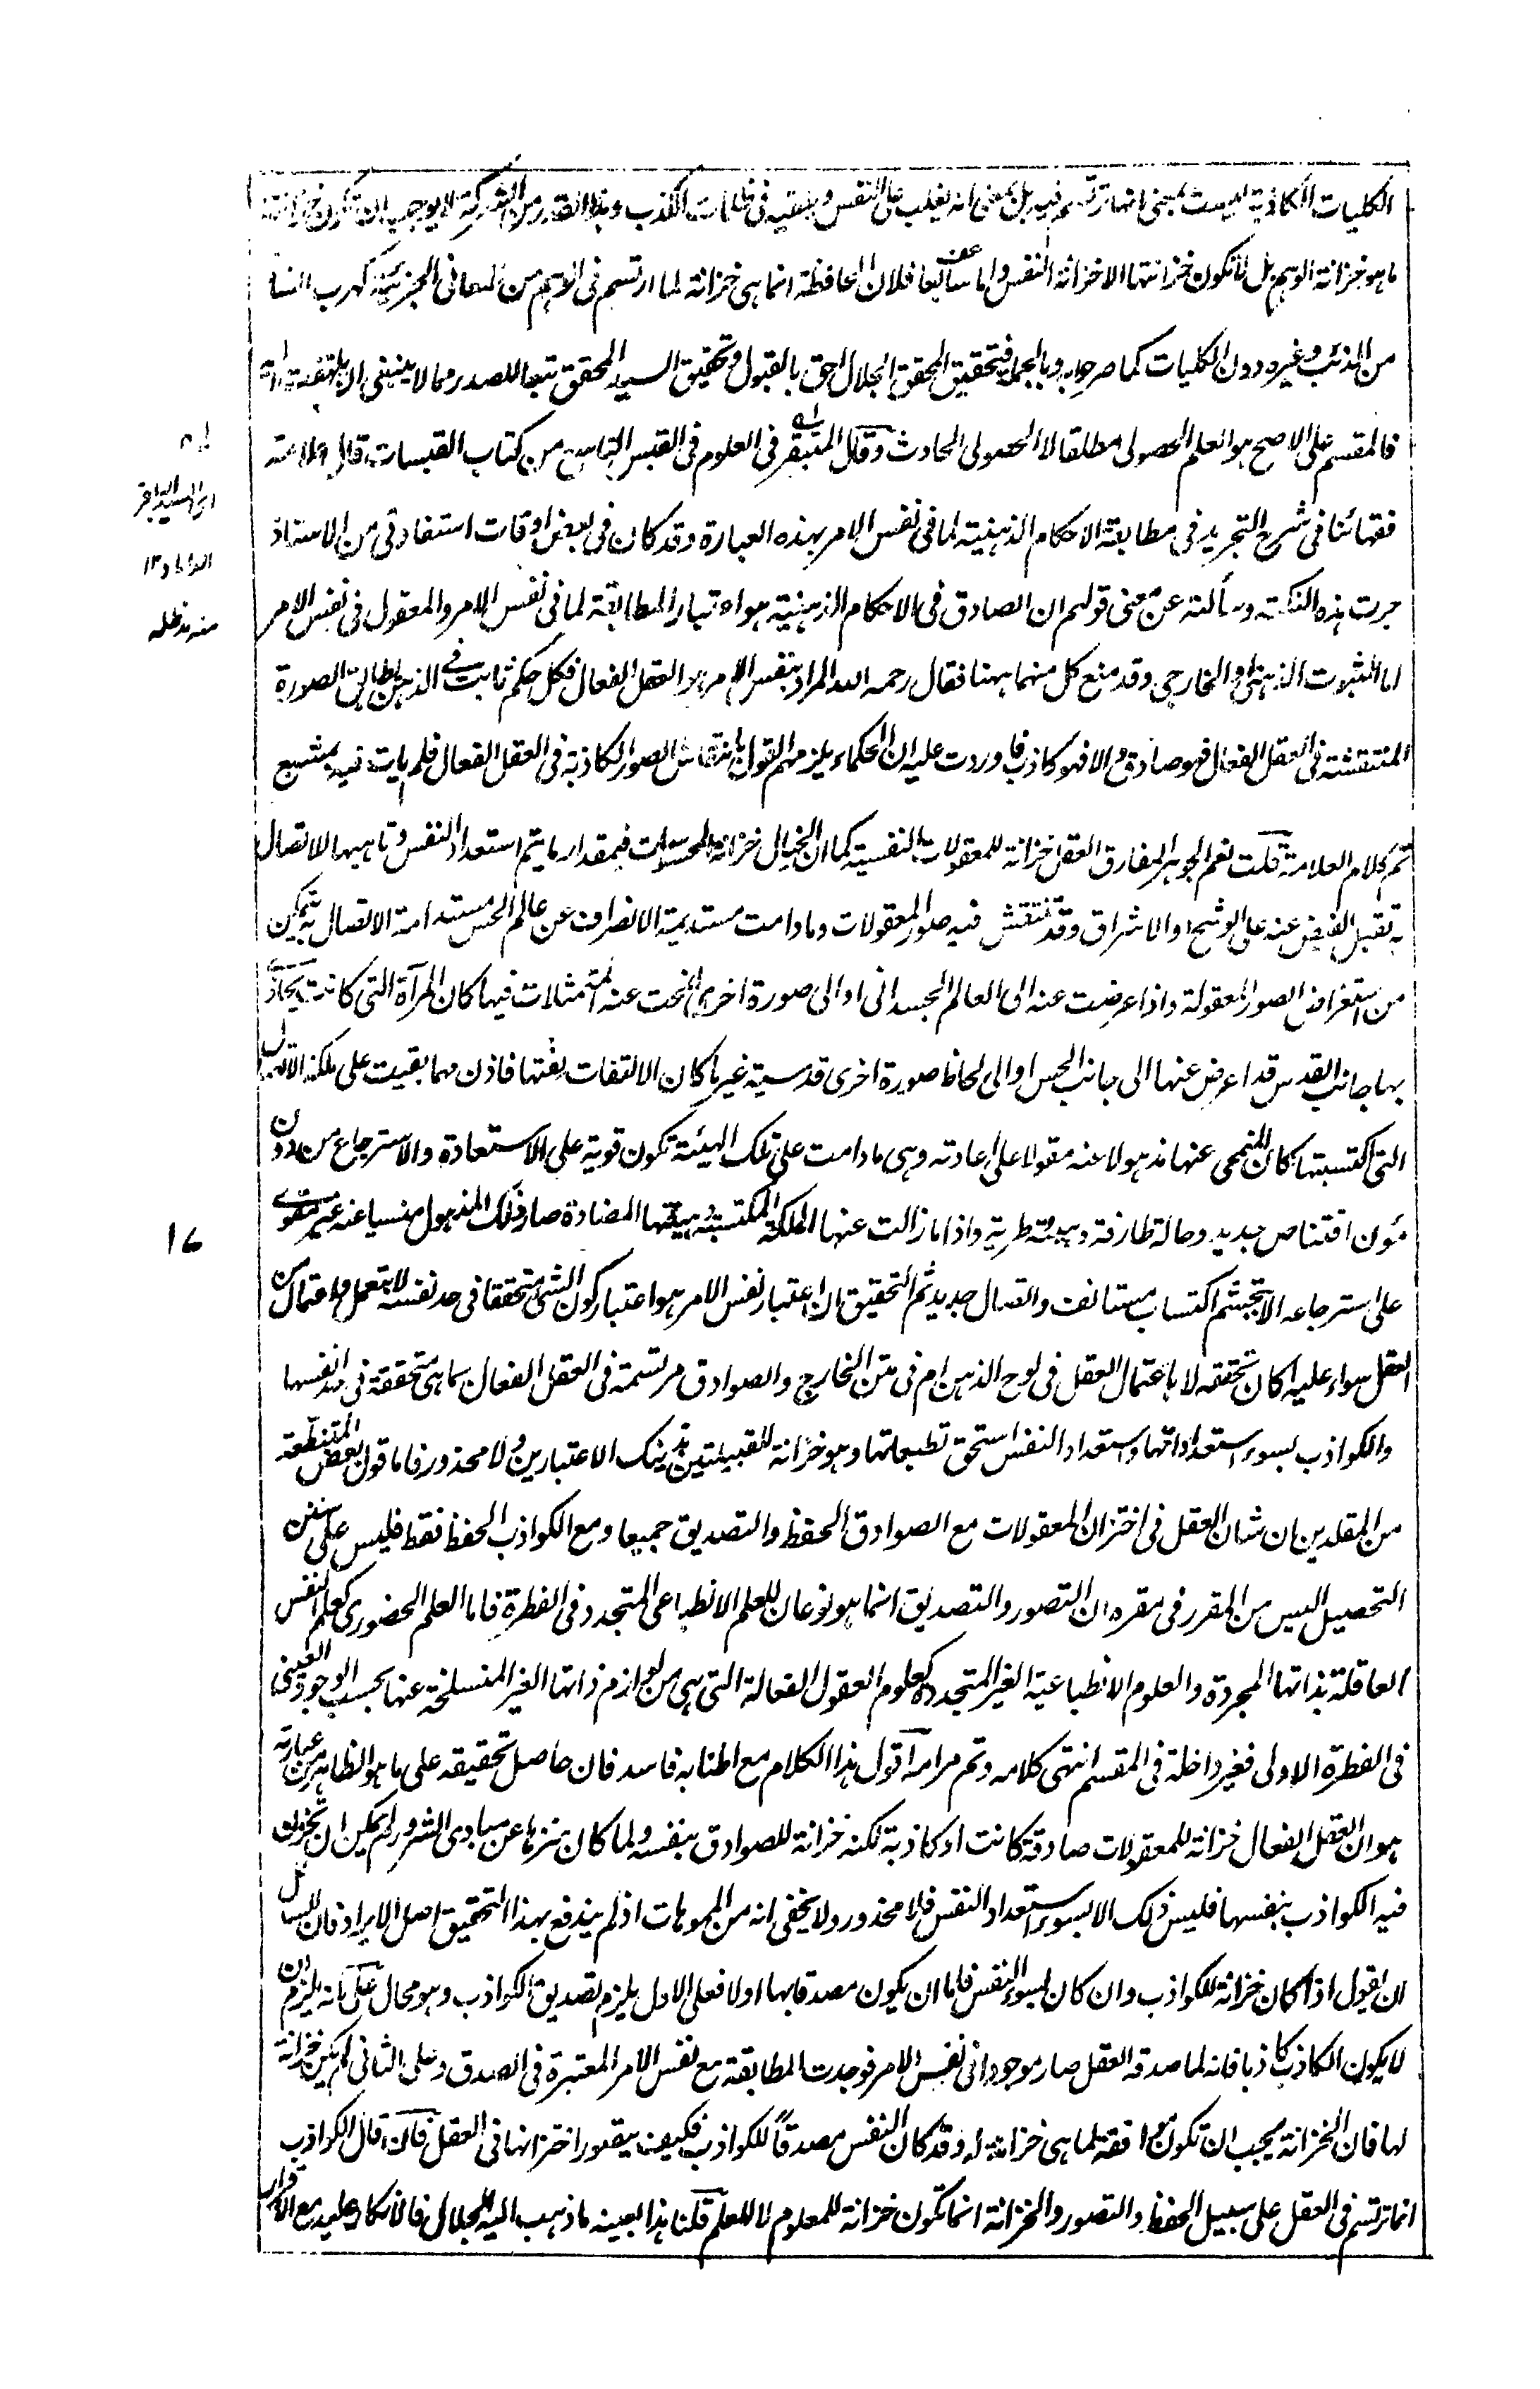 الكليات الكاذبة ليست بمعنى انها ترتسم فيه بل بمعنى انه يغلب على النفس ويلقيه في ظلمات الكذب وهذا القدر من الشركة لا يوجب ان تكون خزانته
ما هو خزانة الوهم بل لا تكون خزانتها الا خزانة النفس واما سابعا فلان الحافظة انما هى خزانة لما ارتسم فى الوهم من المعانى الجزئية كهرب الشاة
من الذئب وغيره دون الكليات كما صرحوا به وبالجملة فتحقيق المحقق الجلال احق بالقبول وتحقيق السيد المحقق تبعا للصدر مما لا ينبغى ان يلتفت اليه
فالمقسم على الاصح هو العلم الحصولى مطلقا لا الحصولى الحادث وقال المتبقر فى العلوم فى القبس التاسع من كتاب القبسات قال علامة
فقهائنا فى شرح التجريد فى مطابقة الاحكام الذهنية لما فى نفس الامر بهذه العبارة وقد كان فى بعض اوقات استفادتى من الاستاذ
جرت هذه النكتة وسألته عن معنى قولهم ان الصادق فى الاحكام الذهنية هو اعتبار المطابقة لما فى نفس الامر والمعقول فى نفس الامر
اما الثبوت الذهنى او الخارجى وقد منع كل منهما ههنا فقال رحمه الله المراد بنفس الامر هو العقل الفعال فكل حكم ثابت فى الذهن يطابق الصورة
المنتقشة فى العقل الفعال فهو صادق والا فهو كاذب فاوردت عليه ان الحكماء يلزمهم القول بانتقاش الصور الكاذبة فى العقل الفعال فلم يات فيه بمشبع
تم كلام العلامة قلت نعم الجوهر المفارق العقلى خزانة للمعقولات النفسية كما ان الخيال خزانة المحسوسات فبمقدار ما يتم استعداد النفس وتاهبها للاتصال
به تقبل الفيض عنه على الرشح والاشراق وقد تنتقش فيه صور المعقولات وما دامت مستديمة الانصراف عن عالم الحس مستدامة الاتصال به تتمكن
من استعراض الصور المعقولة واذا اعرضت عنه الى العالم الجسدانى او الى صورة اخرى انمحت عنه المتمثلات فيها كان المرآة التى كانت يحاذى
بها جانب القدس قد اعرض عنها الى جانب الحس او الى لحاظ صورة اخرى قدسية غير ما كان الالتفات لفتها فاذن مهما بقيت على ملكة الاتصال
التى اكتسبتها كان المنمحى عنها مذهولا عنه مقولا على اعادته وهى ما دامت على تلك الهيئة تكون قوية على الاستعادة والاسترجاع من دون
مؤن اقتناص جديد وحالة طارفة وهيئة طرية واذا ما زالت عنها الملكة المكتسبة بهيئتها المضادة صار ذلك المذهول منسيا عنه غير متقوى
على استرجاعه الا بتجشم اكتساب مستانف واتصال جديد ثم التحقيق ان اعتبار نفس الامر هو اعتبار كون الشئ متحققا فى حد نفسه لا بتعمل واعتمال من
العقل سواء عليه اكان تحققه لا باعتمال العقل فى لوح الذهن ام فى متن الخارج والصوادق مرتسمة فى العقل الفعال بما هى متحققة فى حد انفسها
والكواذب بسوء استعداداتها واستعداد النفس استحق تطبعاتها وهو خزانة للقبيلتين بذينك الاعتبارين ولا محذور فاما قول بعض المتنطعة
من المقلدين ان شان العقل فى اختزان المعقولات مع الصوادق الحفظ والتصديق جميعا ومع الكواذب الحفظ فقط فليس على سنن
التحصيل اليس من المقرر فى مقره ان التصور والتصديق انما هو نوعان للعلم الانطباعى المتجدد فى الفطرة فاما العلم الحضورى كعلم النفس
العاقلة بذاتها المجردة والعلوم الانطباعية الغير المتجددة كعلوم العقول الفعالة التى هى من لوازم ذاتها الغير المنسلخة عنها بحسب الوجود العينى
فى الفطرة الاولى فغير داخلة فى المقسم انتهى كلامه وتم مرامه اقول هذا الكلام مع اطنابه فاسد فان حاصل تحقيقه على ما هو الظاهر من عبارته
هو ان العقل الفعال خزانة للمعقولات صادقة كانت او كاذبة لكنه خزانة للصوادق بنفسه ولما كان منزها عن مبادى الشرور لم يكن ان تخزن
فيه الكواذب بنفسها فليس ذلك الا بسوء استعداد النفس فلا محذور ولا يخفى انه من المموهات اذ لم يندفع بهذا التحقيق اصل الايراد فان للسائل
ان يقول اذا كان خزانة للكواذب وان كان بسوء النفس فاما ان يكون مصدقا بها او لا فعلى الاول يلزم تصديق الكواذب وهو محال على انه يلزم ان
لا يكون الكاذب كاذبا فانه لما صدقه العقل صار موجودا فى نفس الامر فوجدت المطابقة مع نفس الامر المعتبرة فى الصدق وعلى الثانى لم يكن خزانة
لها فان الخزانة يجب ان تكون موافقة لما هى خزانة له وقد كان النفس مصدقاً للكواذب فكيف يتصور اختزانها فى العقل فان قال الكواذب
انما ترتسم فى العقل على سبيل الحفظ والتصور والخزانة انما تكون خزانة للمعلوم لا للعلم قلنا هذا بعينه ما ذهب اليه الجلال فالانكار عليه مع الاقرار
اى السيد الباقر
الداماد ١٢
منه مدظله
١٧